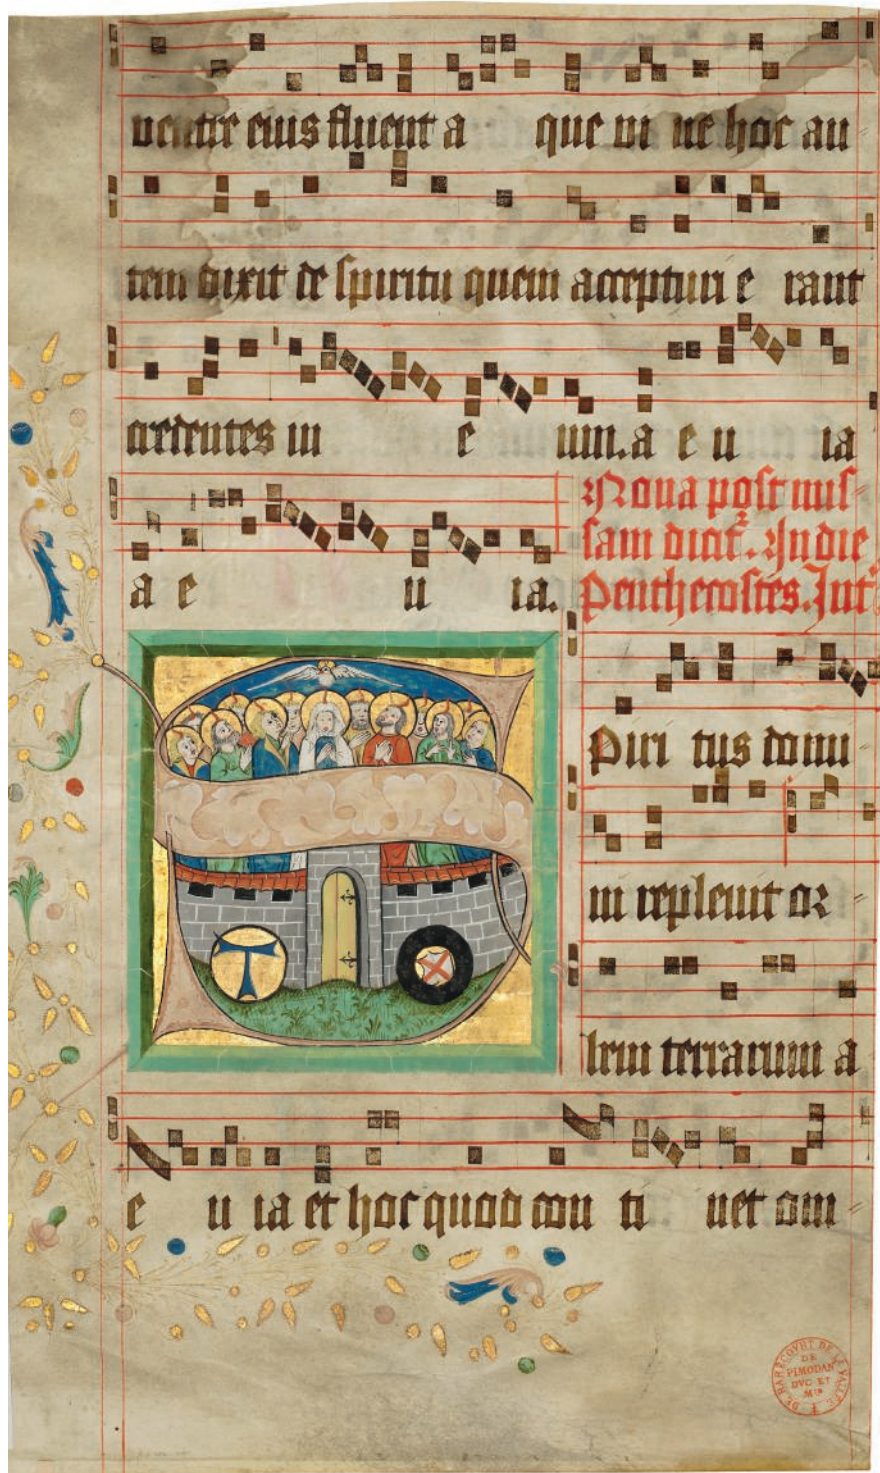 ventre eius fluent a que vi ve hoc au
tem dixit de spiritu quem accepturi e rant
credentes in e um. a e u ia
a e u ia.
Nona post mis
sam dicit̃. In die
Penthecostes. Int̃
Piri tus domi
ni repleuit or
bem terrarum a
e u ia et hoc quod con ti net om
DE RARECOVRT DE LA VALLEE
DE
PIMODAN
DVC ET
Mis